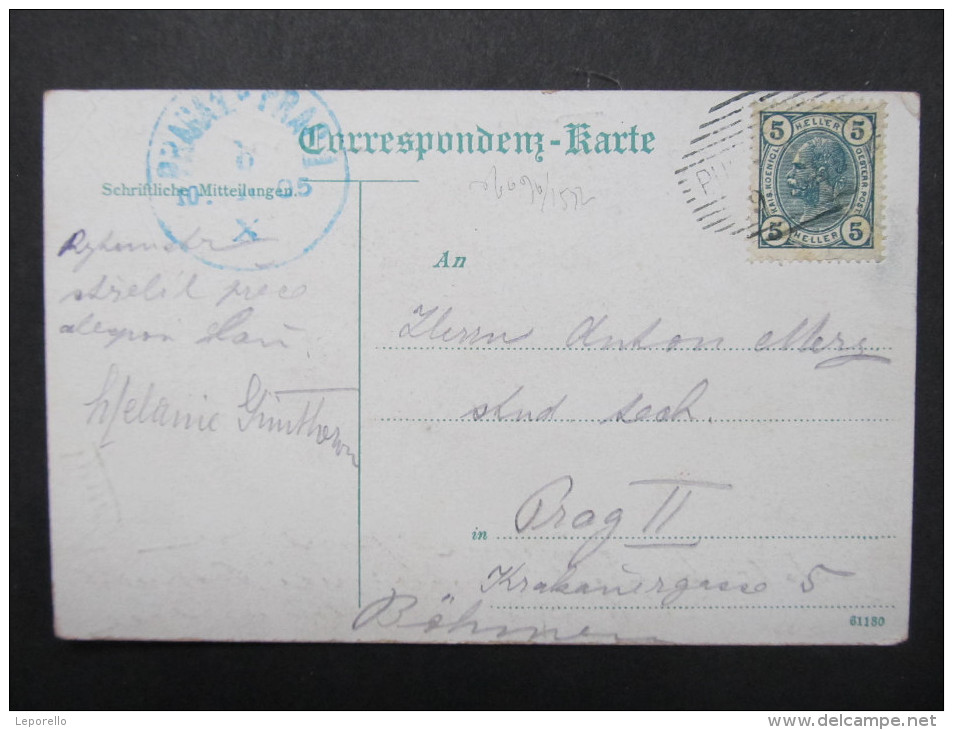 PRAHA 1 - PRAG 1
Correspondenz-Karte
Schriftliche Mitteilungen.
X
5 HELLER 5
KAIS. KOENIGL. OESTERR. POST
5 HELLER 5
An
střelil přece
alespoň
Melanie
Herrn Anton Merz
stud tech.
in Prag II
Krakauergasse 5
Böhmen
61180
Leporello
www.delcampe.net